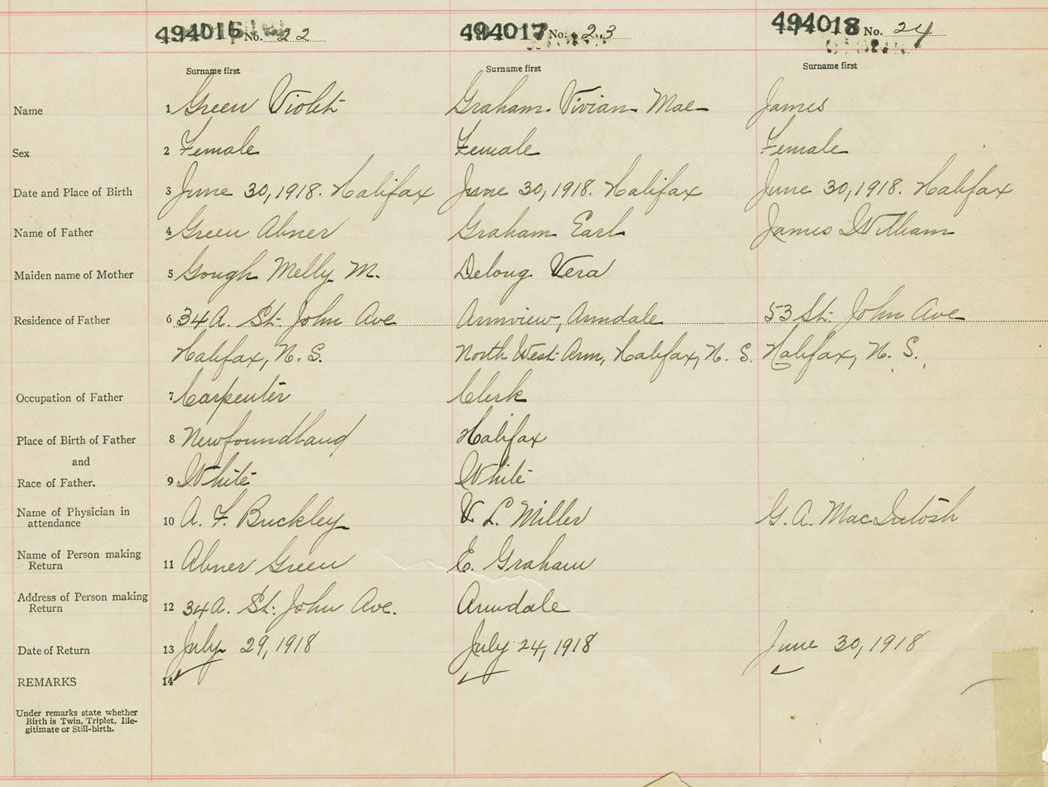 494016 No. 22 494017 No. 23 494018 No. 24
Surname first Surname first Surname first
Name 1 Green Violet Graham Vivian Mae James
Sex 2 Female Female Female
Date and Place of Birth 3 June 30, 1918. Halifax June 30, 1918. Halifax June 30, 1918. Halifax
Name of Father 4 Green Abner Graham Earl James William
Maiden name of Mother 5 Gough Melly M. Delong Vera
Residence of Father 6 34A. St. John Ave Armview, Armdale 53 St. John Ave
Halifax, N. S. North West Arm, Halifax, N. S. Halifax, N. S.
Occupation of Father 7 Carpenter Clerk
Place of Birth of Father 8 Newfoundland Halifax
and
Race of Father. 9 White White
Name of Physician in
attendance 10 A. F. Buckley V L. Miller G. A. MacIntosh
Name of Person making
Return 11 Abner Green E. Graham
Address of Person making
Return 12 34A. St. John Ave. Armdale
Date of Return 13 July 29, 1918 July 24, 1918 June 30, 1918
REMARKS 14
Under remarks state whether
Birth is Twin, Triplet, Ille-
gitimate or Still-birth.